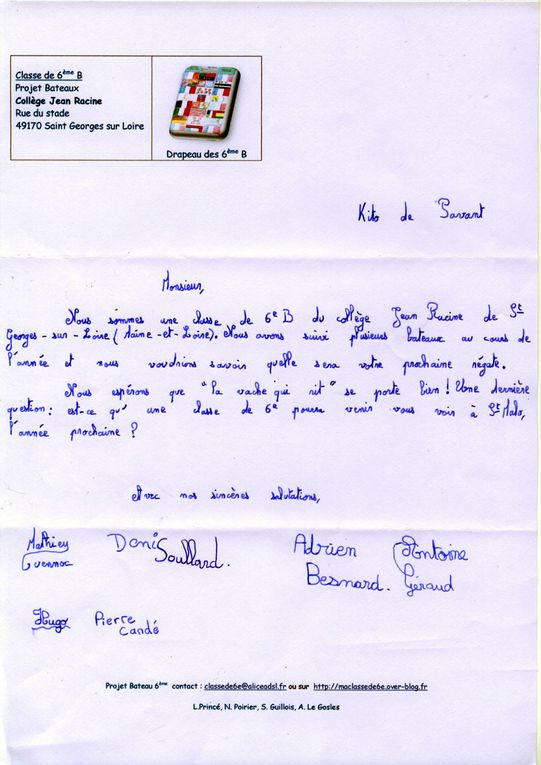 Classe de 6ème B
Projet Bateaux
Collège Jean Racine
Rue du stade
49170 Saint Georges sur Loire
Drapeau des 6ème B
Kito de Pavant
Monsieur,
Nous sommes une classe de 6e B du collège Jean Racine de St
Georges-sur-Loire (Maine-et-Loire). Nous avons suivi plusieurs bateaux au cours de
l'année et nous voudrions savoir quelle sera votre prochaine régate.
Nous espérons que "la vache qui rit" se porte bien ! Une dernière
question : est-ce qu'une classe de 6e pourra venir vous voir à St Malo,
l'année prochaine ?
Avec nos sincères salutations,
Mathieu Denis Adrien Antoine
Soullard. Besnard. Géraud
Hugo Pierre
Candé
Projet Bateau 6ème contact : classede6e@aliceadsl.fr ou sur http://maclassede6e.over-blog.fr
L.Princé, N. Poirier, S. Guillois, A. Le Gosles